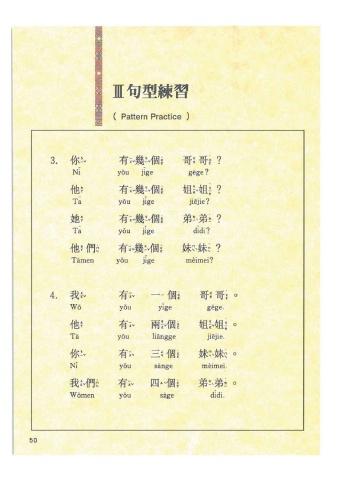 III 句型練習
( Pattern Practice )
3. 你 有幾個 哥哥?
Nǐ yǒu jǐge gēge?
他 有幾個 姐姐?
Tā yǒu jǐge jiějie?
她 有幾個 弟弟?
Tā yǒu jǐge dìdi?
他們 有幾個 妹妹?
Tāmen yǒu jǐge mèimei?
4. 我 有 一個 哥哥。
Wǒ yǒu yíge gēge.
他 有 兩個 姐姐。
Tā yǒu liǎngge jiějie.
你 有 三個 妹妹。
Nǐ yǒu sānge mèimei.
我們 有 四個 弟弟。
Wǒmen yǒu sàge dìdi.
50